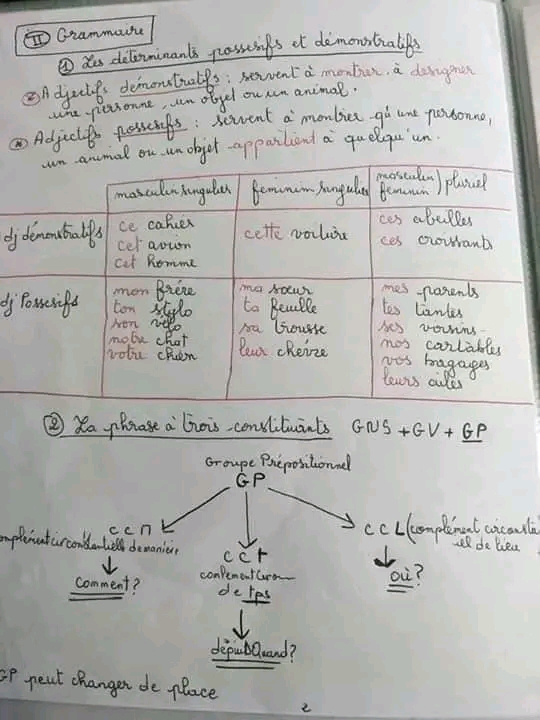 II Grammaire
1 Les déterminants possesifs et démonstratifs
Adjectifs démonstratifs : servent à montrer à designer
une personne, un objet ou un animal.
Adjectifs possesifs : servent à montrer qu'une personne,
un animal ou un objet appartient à quelqu'un.
masculin singulier feminim singulier masculin) pluriel
feminin
dj démonstratifs ce cahier cette voiture ces abeilles
cet avion ces croissants
cet homme
dj Possesifs mon frère ma sœur mes parents
ton stylo ta feuille tes tantes
son vélo sa trousse ses voisins
notre chat leur chèvre nos cartables
votre chien vos bagages
leurs ailes
2 La phrase à trois constituants GNS + GV + GP
Groupe Prépositionnel
GP
CCM CCt CCL (complément circonsta
omplément circonstantielle de manière complement circon iel de lieu
de tps
Comment? où?
depuis Quand?
GP peut changer de place
2